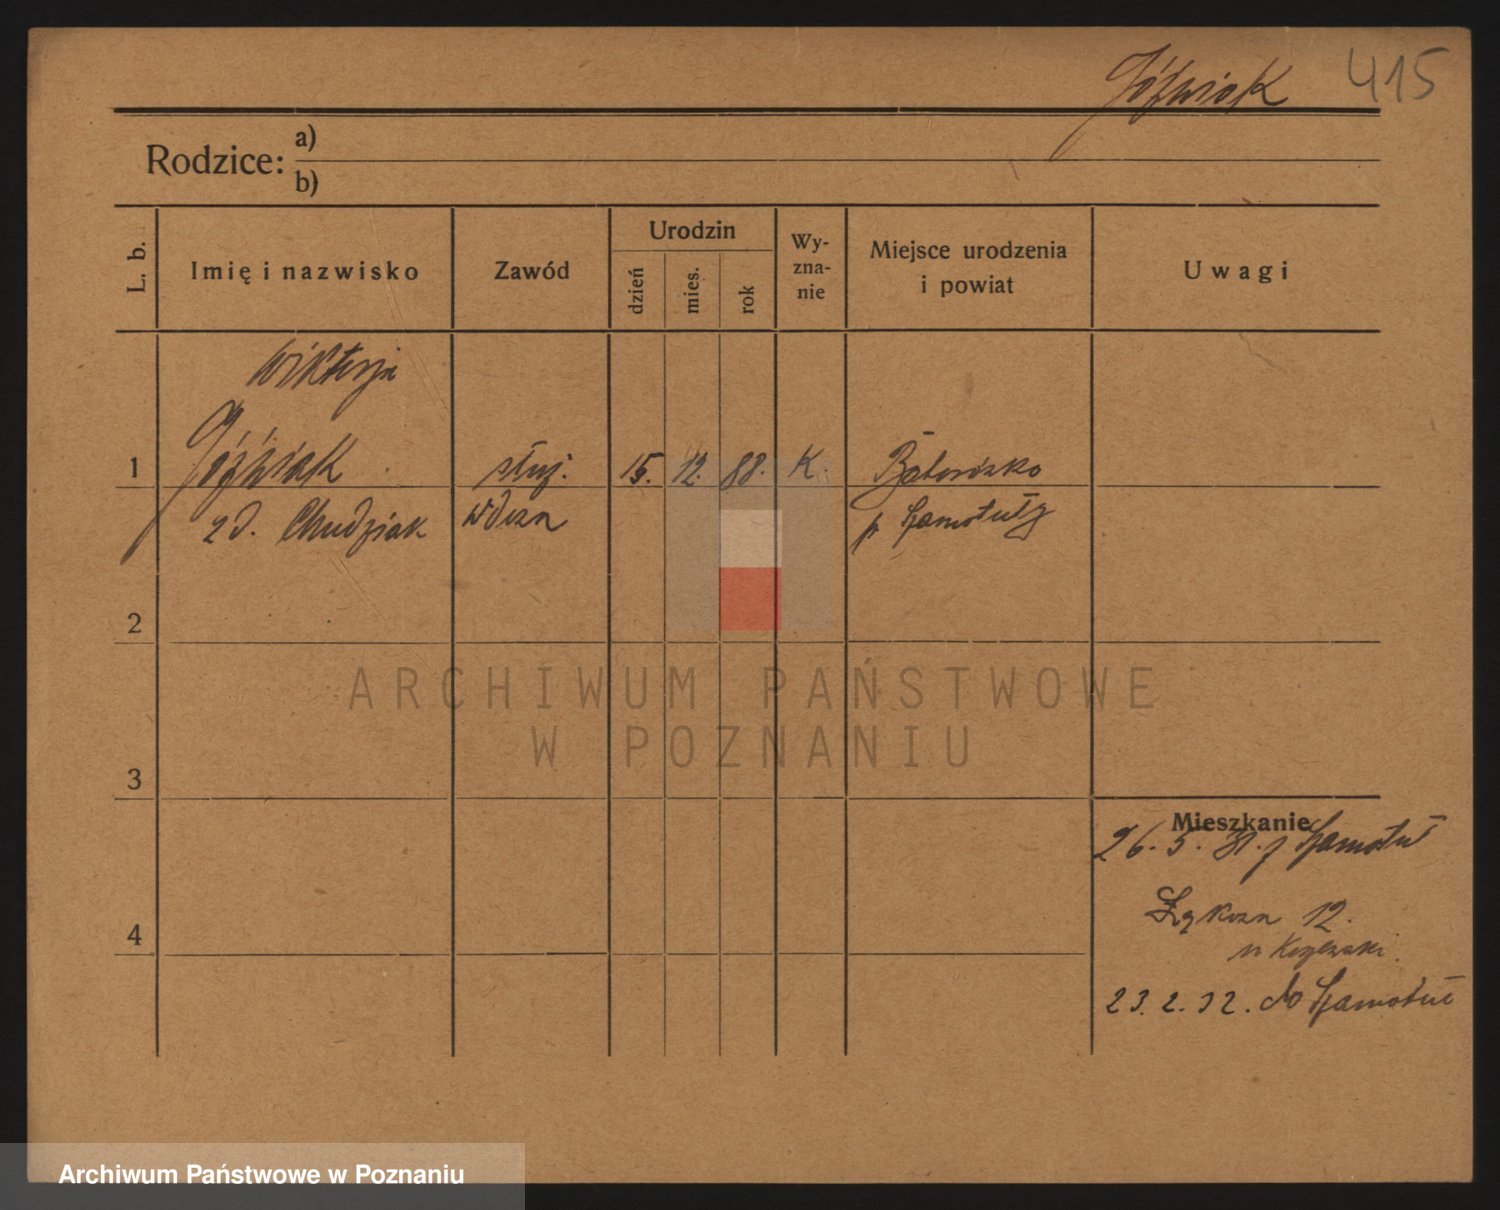 Jóźwiak 415
Rodzice: a)
b)
L. b. Imię i nazwisko Zawód Urodzin dzień mies. rok Wy-zna-nie Miejsce urodzenia i powiat Uwagi
Wiktorja
1 Jóźwiak służ. 15. 12. 88. K.
zd. Chudziak wdowa p Szamotuły
2
3
4
Mieszkanie
26. 5. 31. z Szamotuł
Łąkowa 12.
23. 2. 32. do Szamotuł
ARCHIWUM PAŃSTWOWE
W POZNANIU
Archiwum Państwowe w Poznaniu